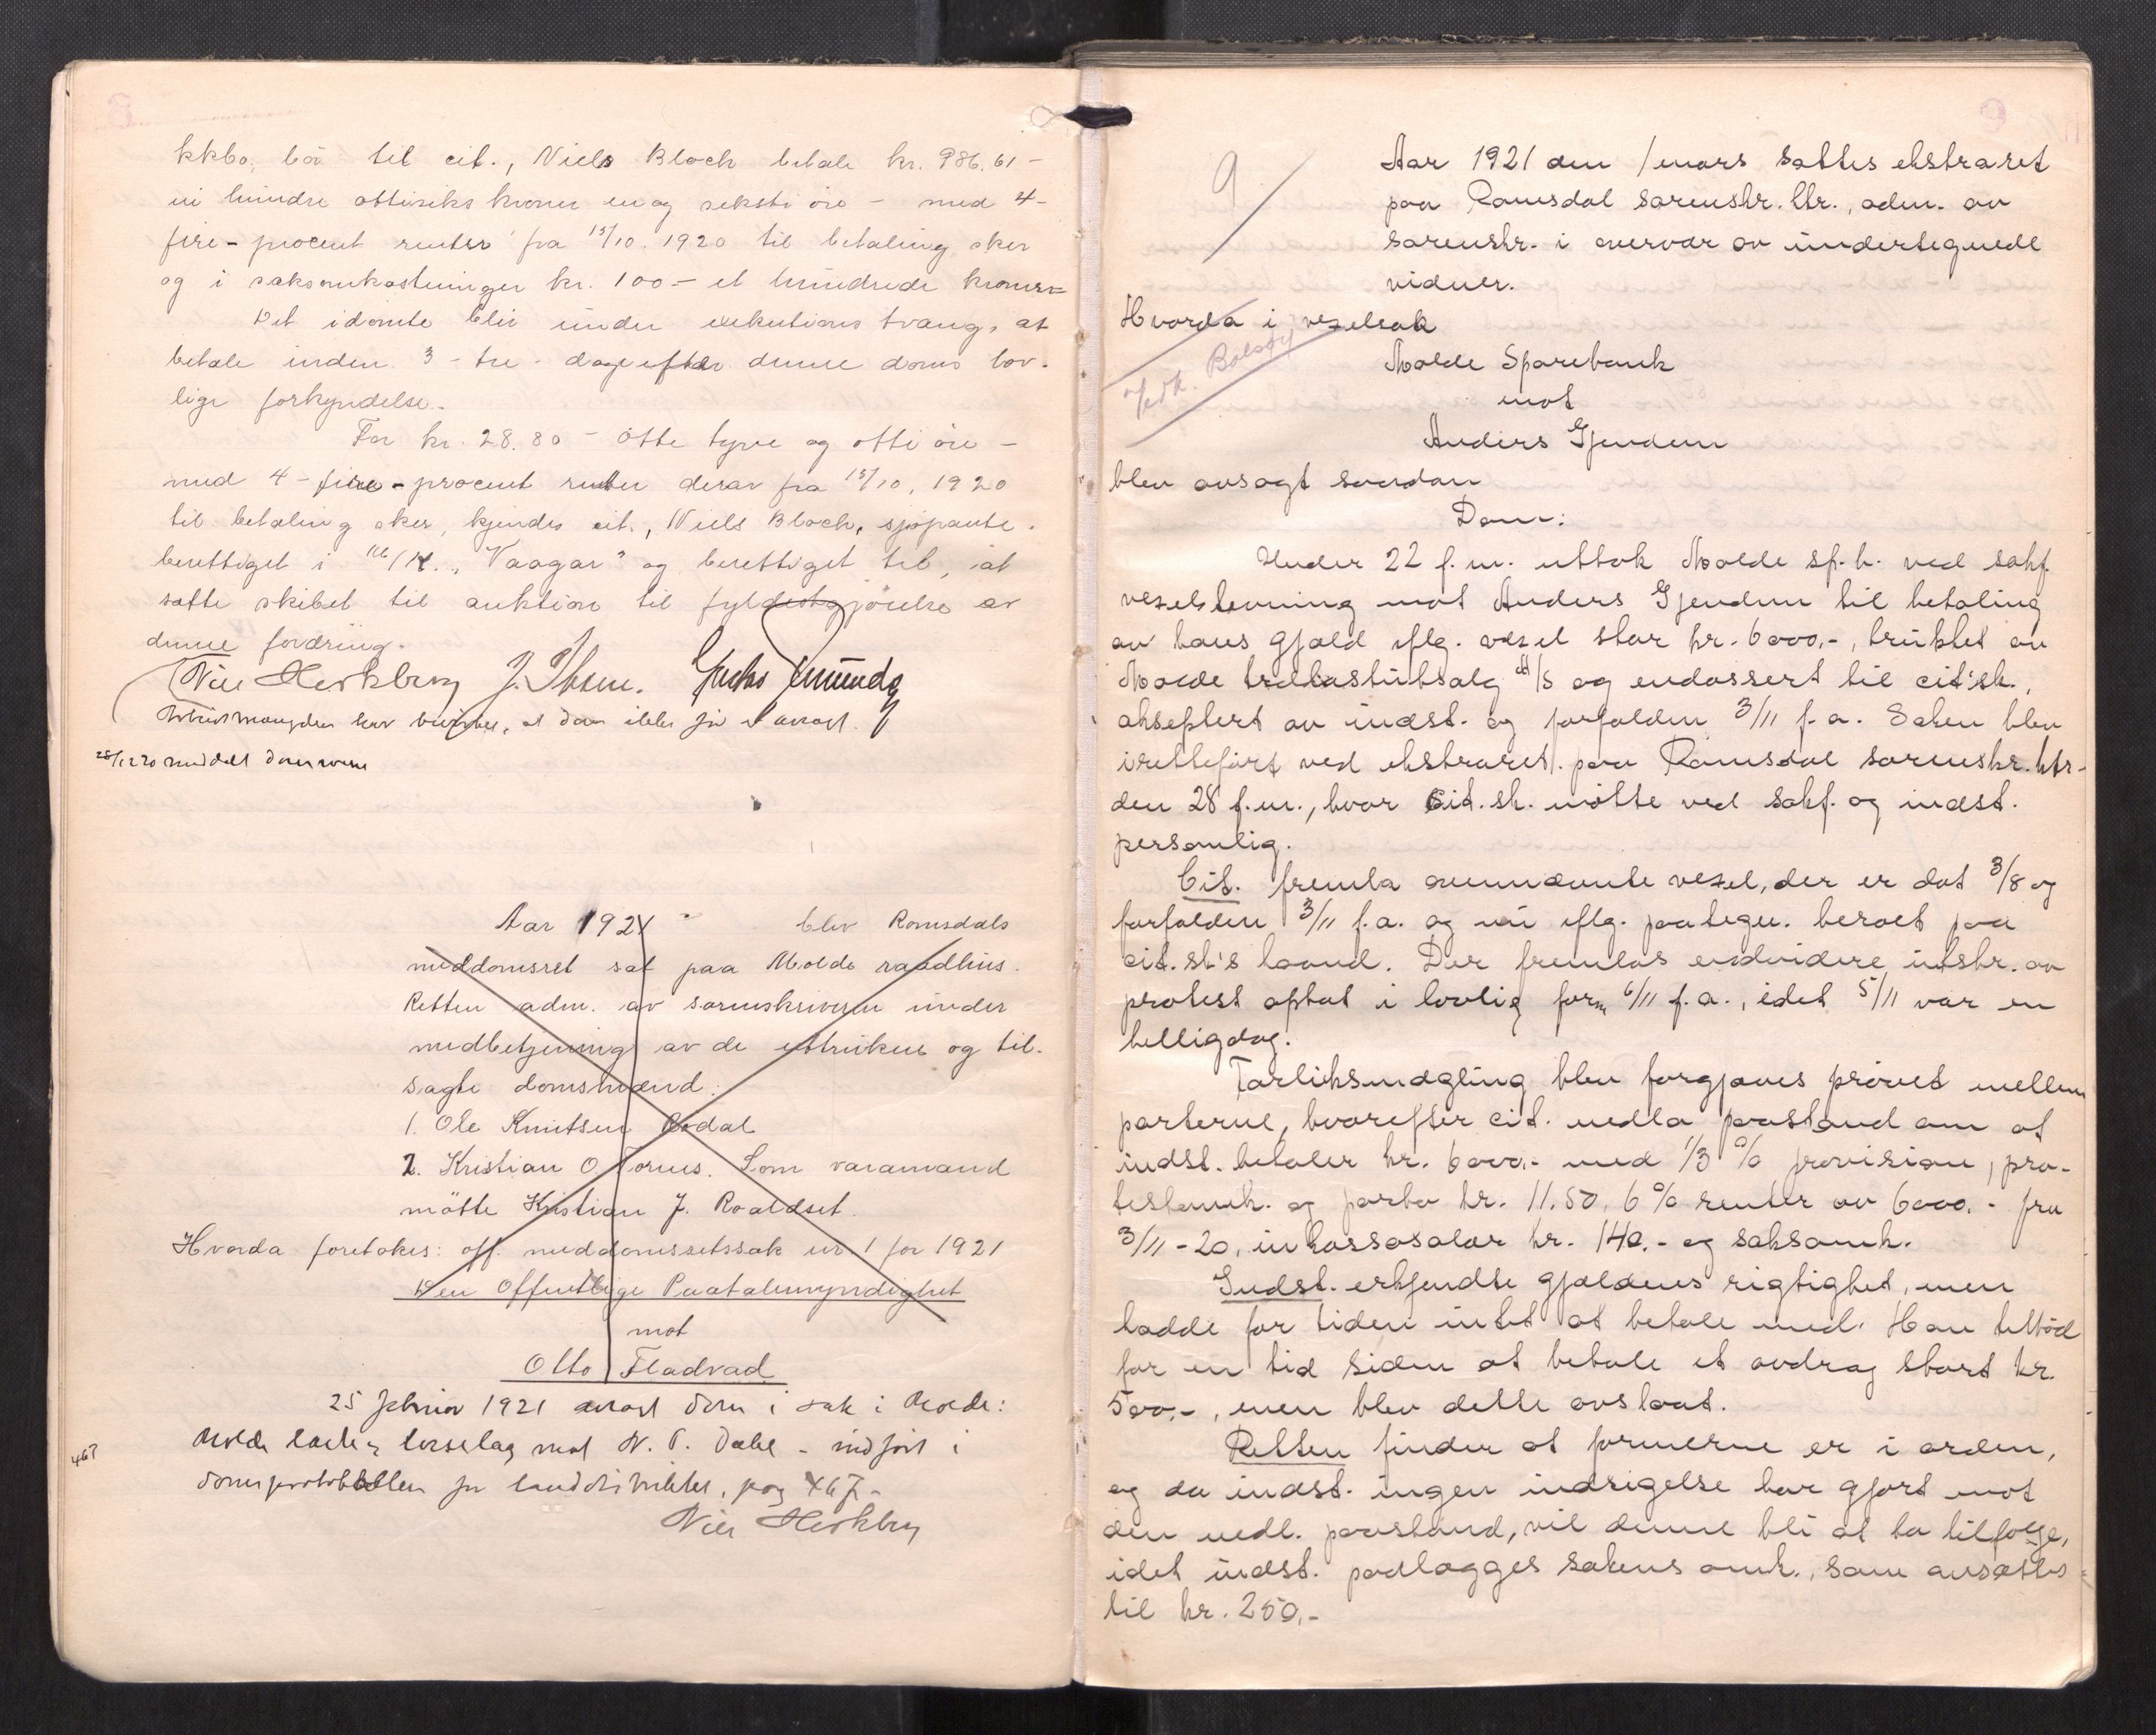 kkbo, bör til cit., Niels Bloch betale kr. 986.61 -
ni hundre ottiseks kroner en og seksti öre - med 4-
fire - procent renter fra 15/10. 1920 til betaling sker
og i saksomkostninger kr. 100 - et hundrede kroner -
Det idömte blir under exekutions tvang, at
betale inden 3 - tre - dage efter denne doms lov-
lige forkyndelse.
For kr. 28.80 - otte tyve og otti öre -
med 4 - fire - procent renter derav fra 15/10. 1920
til betaling sker, kjendes cit., Niels Bloch, sjöpante-
berettiget i M/K. "Vaagar" og berettiget til, at
sætte skibet til auktion til fyldestgjörelse av
denne fordring.
J. Ibsen.
at dom ikke för er avsagt.
28/12 20 meddelt
Aar 1921 blev Romsdals
meddomsret sat paa Molde raadhus.
Retten adm. av sorenskriveren under
medbetjening av de uttrukne og til-
sagte domsmænd:
1. Ole Knutsen
2. Kristian O. Som varamand
mötte Kristian J. Roaldset.
Hvorda foretokes: off. meddomsretssak nr 1 for 1921
Den Offentlige Paatalemyndighet
mot
Otto Fladvad
25 februar 1921 avsagt dom i sak i Molde:
Molde mot N. P. Dahl - indfört i
domsprotokollen for landdistriktet, pag 467-
467
9
Aar 1921 den 1 mars sattes ekstraret
paa Romsdal sorenskr. ktr., adm. av
sorenskr. i overvær av undertegnede
vidner.
Hvorda i vexelsak
Bolsöy
Molde Sparebank
mot
Anders Gjendem
blev avsagt saadan
Dom:
Under 22 f.m. uttok Molde sp.b. ved sakf.
vexelstevning mot Anders Gjendem til betaling
av hans gjæld iflg. vexel stor kr. 6000.-, trukket av
Molde og endossert til cit.sk.,
akseptert av indst. og forfalden 3/11 f.a. Saken blev
iretteført ved ekstraret paa Romsdal sorenskr. ktr.
den 28 f.m., hvor cit.sk. mötte ved sakf. og indst.
personlig.
Cit. fremla ovennævnte vexel, der er dat 3/8 og
forfalden 3/11 f.a. og var iflg. paategn. beroet paa
cit.sk's haand. Der fremlas endvidere utskr. av
protest optat i lovlig form 6/11 f.a., idet 5/11 var en
helligdag.
Forliksmægling blev forgjæves prövet mellem
parterne, hvorefter cit. nedla paastand om at
indst. betaler kr. 6000.- med 1/3 % provision, pro-
testomk. og porto kr. 11.50, 6 % renter av 6000.- fra
3/11 - 20, inkassosalær kr. 140.- og saksomk.
Indst. erkjendte gjældens rigtighet, men
hadde for tiden intet at betale med. Han tilböd
for en tid siden at betale et avdrag stort kr.
500.-, men blev dette avslaat.
Retten finder at formerne er i orden,
og da indst. ingen indsigelse har gjort mot
den nedl. paastand, vil denne bli at ta tilfölge,
idet indst. paalægges sakens omk., som ansættes
til kr. 250.-